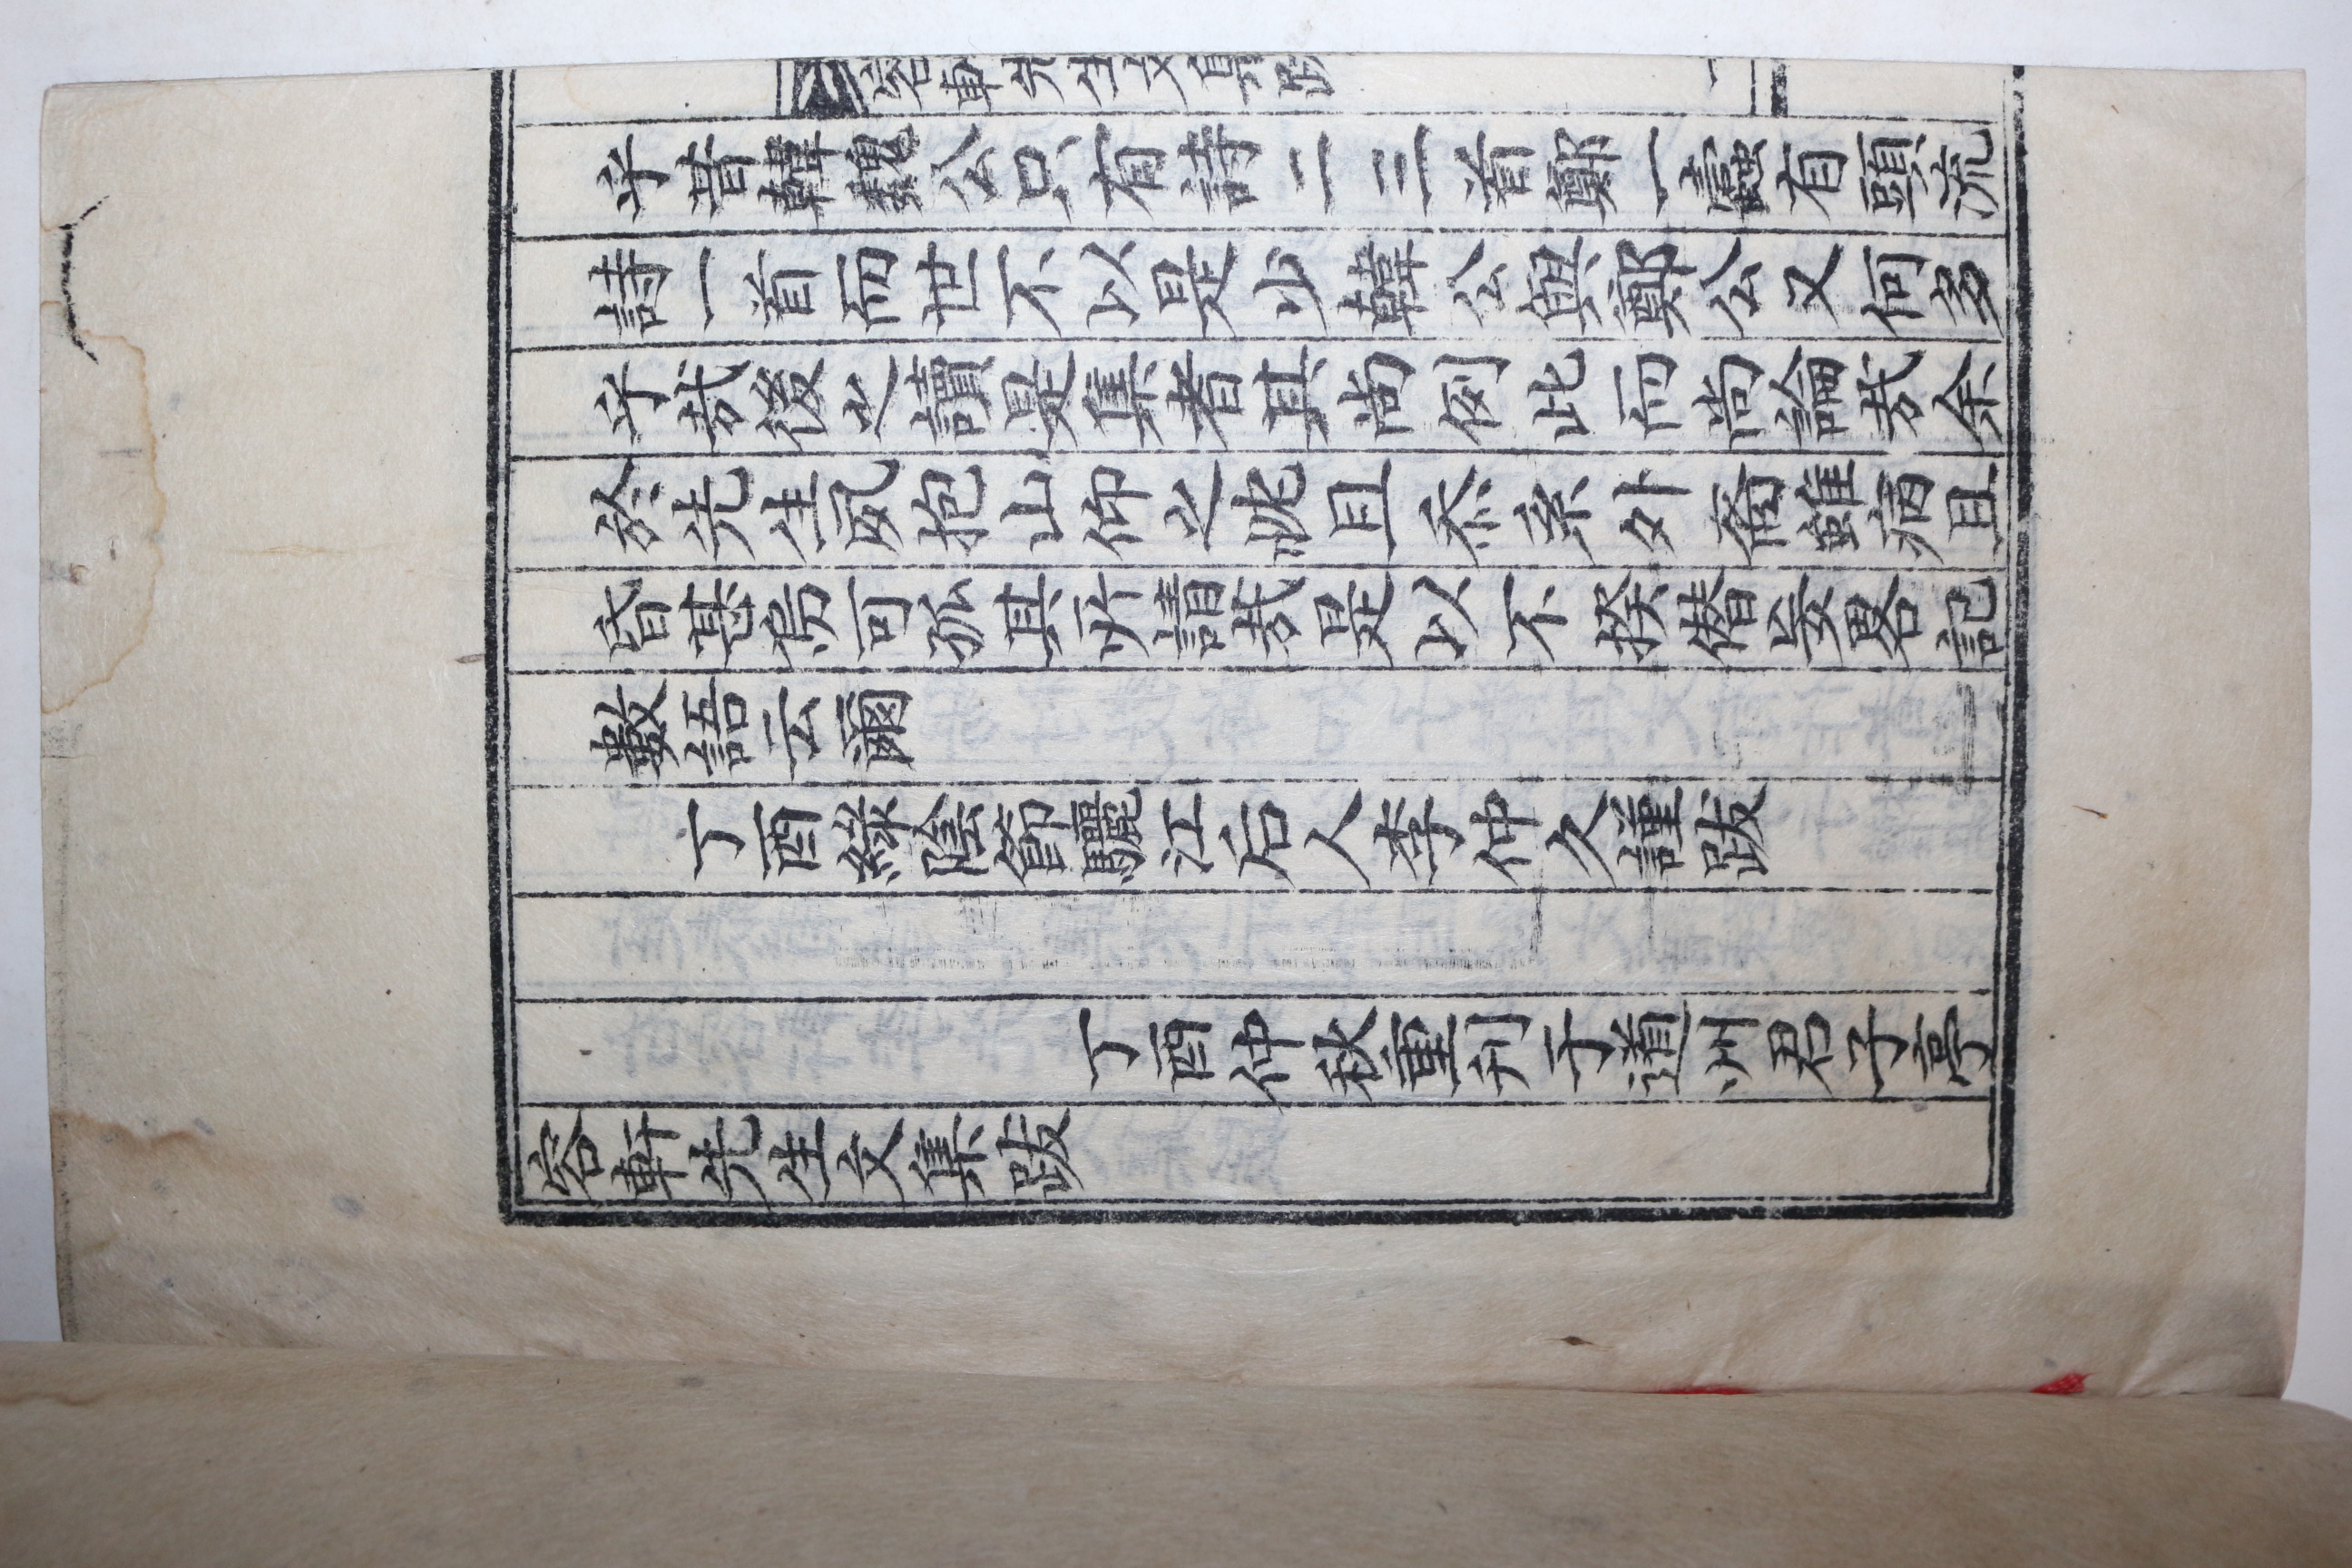 容軒先生文集跋
乎昔韓魏公只有詩二三首鄭一蠹有頭流
詩一首而世不以是少韓公與鄭公又何多
乎哉後之讀是集者其尚例此而尚論哉余
於先生夙抱山仰之忱且忝系外裔雖病且
昏甚烏可孤其所請哉是以不揆僭妄畧記
數語云爾
丁酉綠陰節驪江后人李仲久謹跋
丁酉仲秋重刊于道州君子亭
容軒先生文集跋